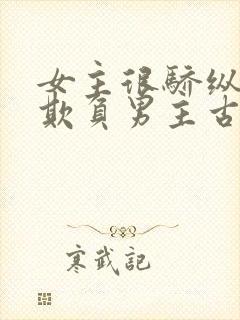 女主很驕纵
欺負男主古
寒武記